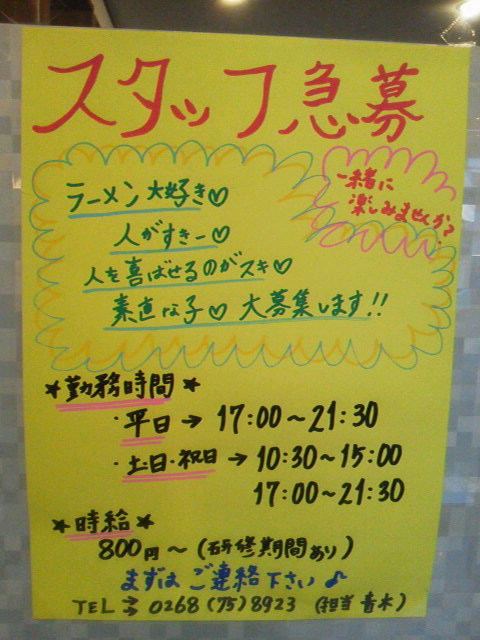 スタッフ急募
一緒に
楽しみませんか?
ラーメン大好き♡
人がすきー♡
人を喜ばせるのがスキ♡
素直な子♡大募集します!!
*勤務時間*
・平日→17:00〜21:30
・土日・祝日→10:30〜15:00
17:00〜21:30
*時給*
800円〜(研修期間あり)
まずはご連絡下さい♪
TEL→0268(75)8923 (担当 青木)